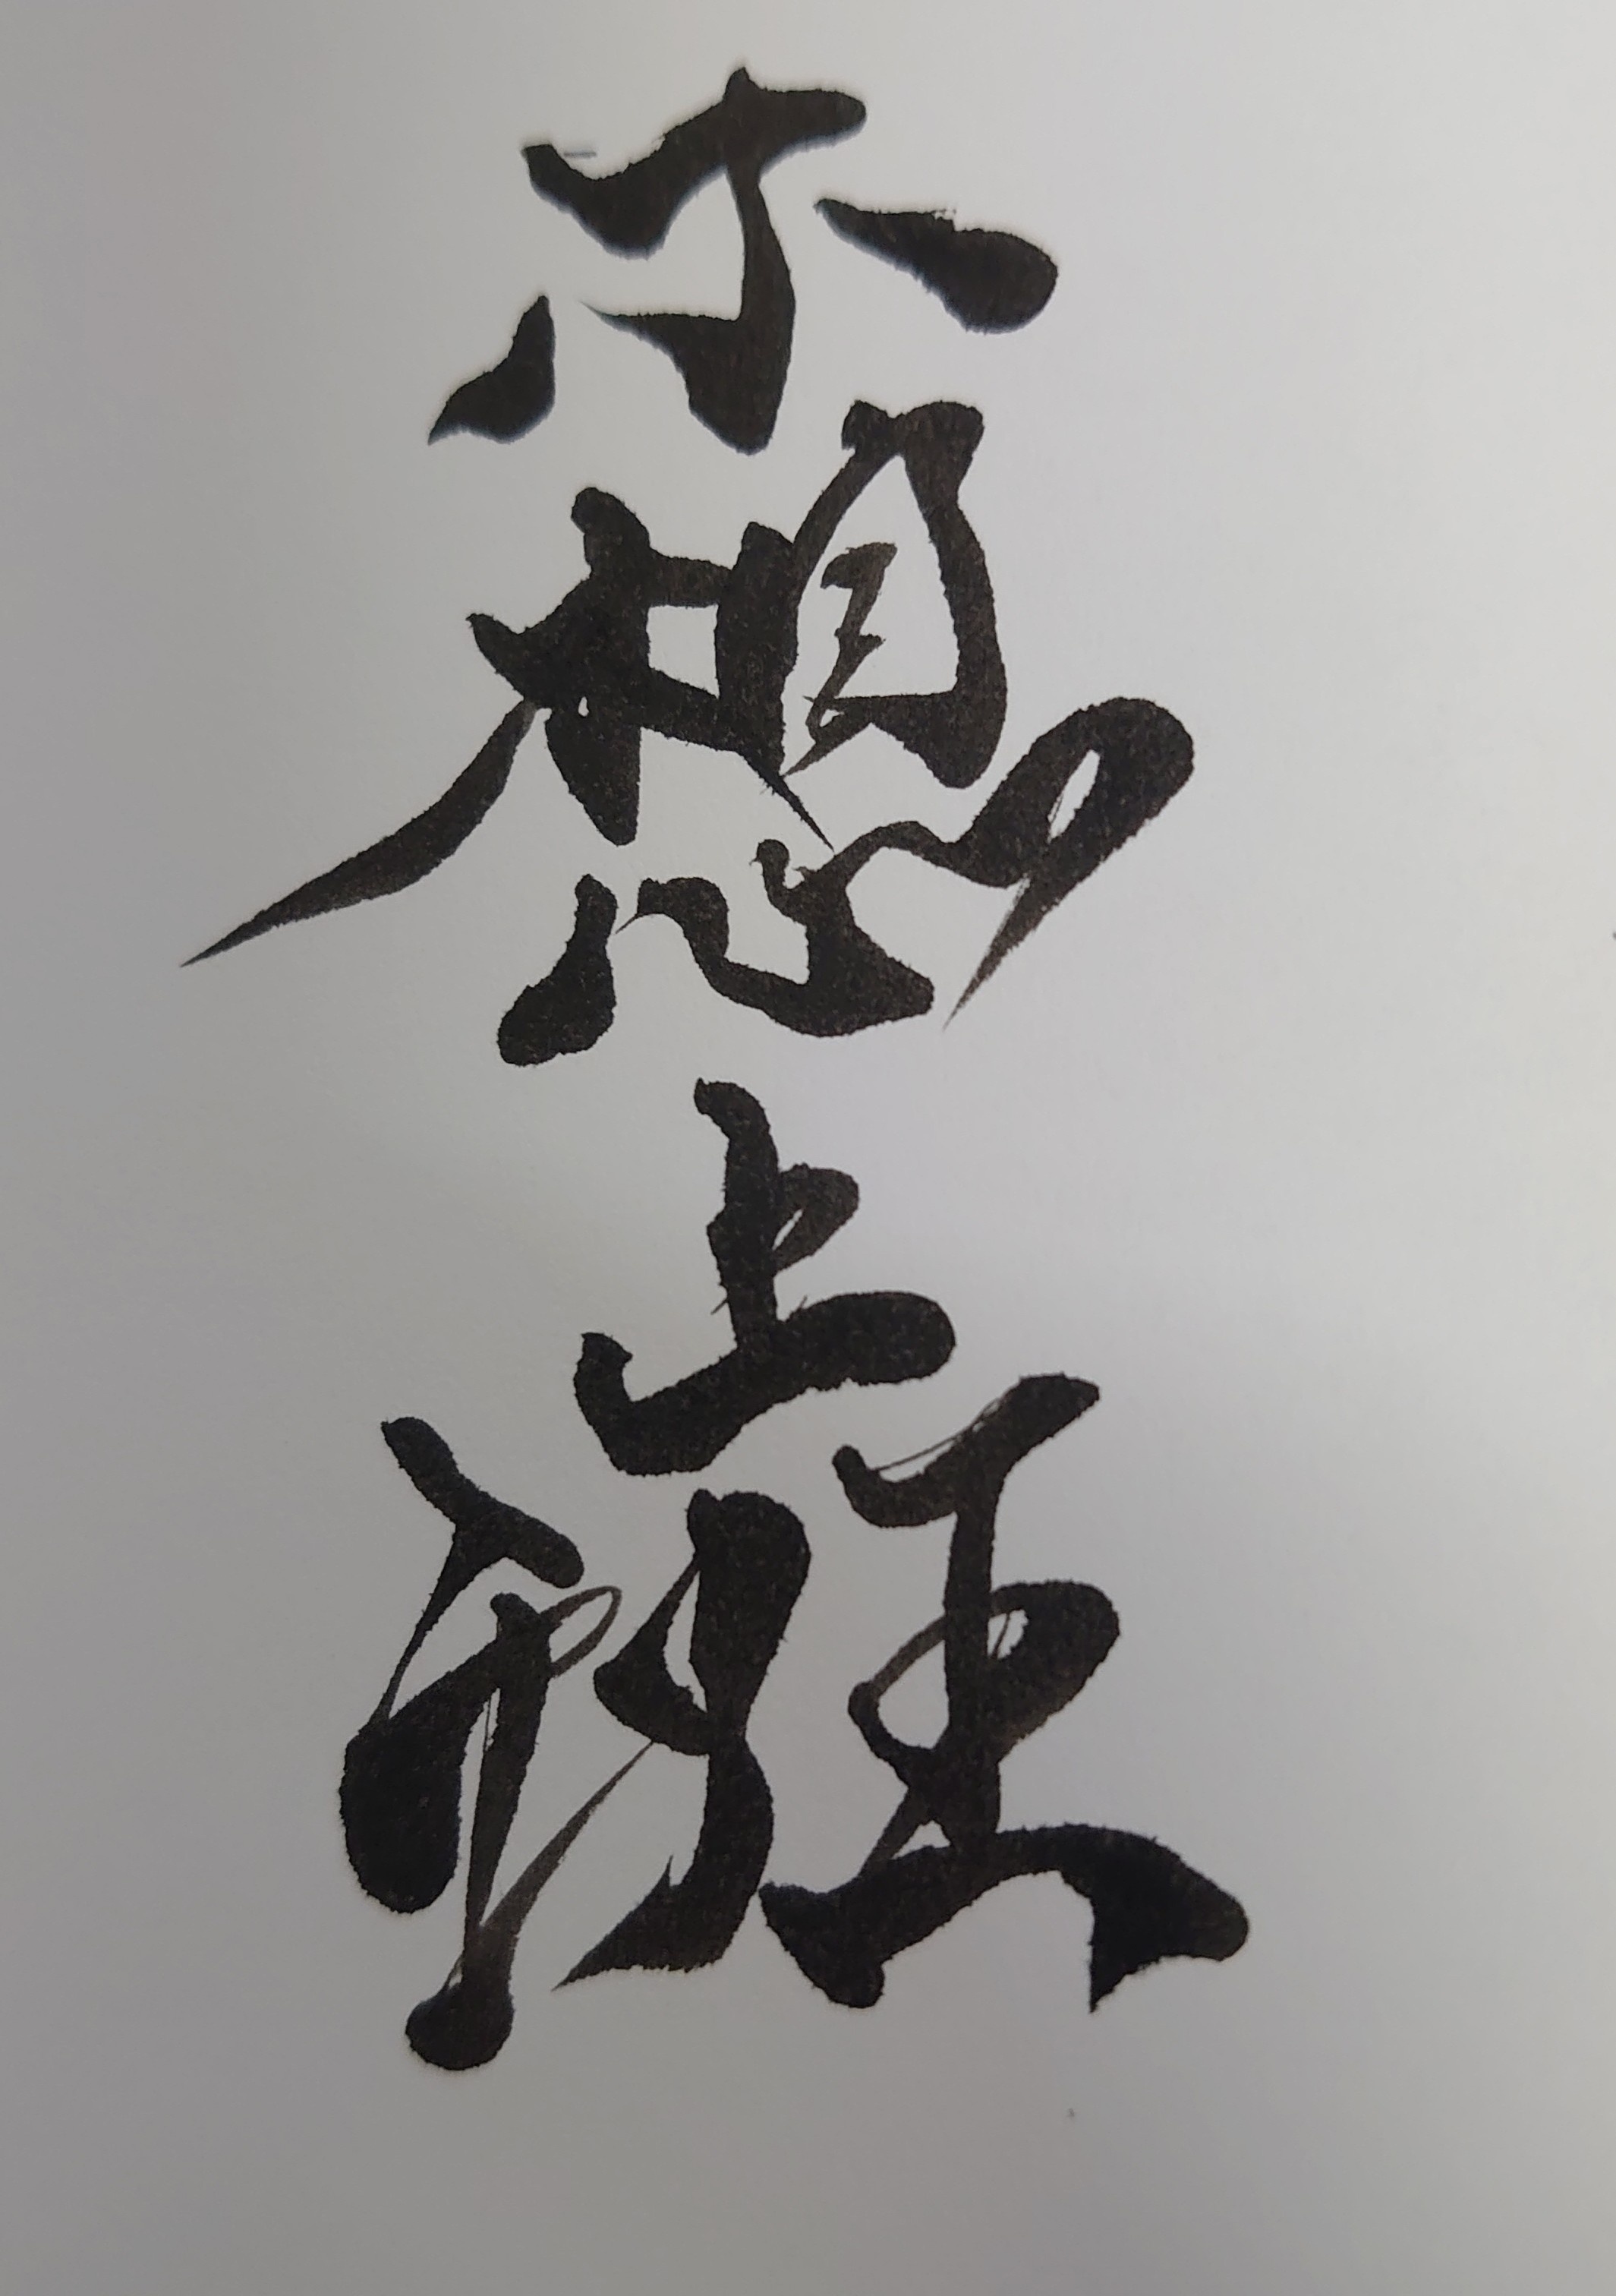 不想上班